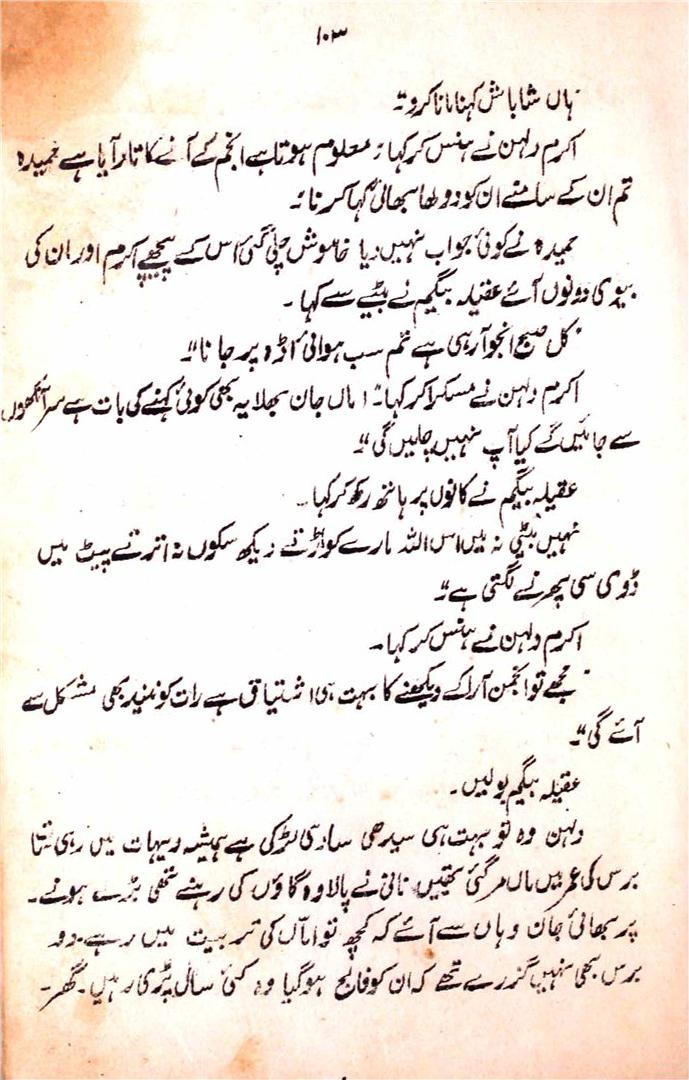 ۱۰۳
"ہاں شاباش کہنا مانا کرو"۔
اکرم دلہن نے ہنس کر کہا: "معلوم ہوتا ہے انجم کے آنے کا تار آیا ہے حمیدہ
تم ان کے سامنے ان کو دولھا بھائی کہا کرنا"۔
حمیدہ نے کوئی جواب نہیں دیا خاموش چلی گئی اس کے پیچھے اکرم اور ان کی
بیوی دونوں آئے عقیلہ بیگم نے بیٹے سے کہا۔
"کل صبح انجو آرہی ہے تم سب ہوائی اڈہ پر جانا"۔
اکرم دلہن نے مسکرا کر کہا: "اماں جان بھلا یہ بھی کوئی کہنے کی بات ہے سر آنکھوں
سے جائیں گے کیا آپ نہیں چلیں گی"۔
عقیلہ بیگم نے کانوں پر ہاتھ رکھ کر کہا۔
نہیں بیٹی نہ میں اس اللہ مارے کو اڑتے دیکھ سکوں نہ اترتے پیٹ میں
ڈوئی سی پھرنے لگتی ہے"۔
اکرم دلہن نے ہنس کر کہا۔
"مجھے تو انجمن آرا کے دیکھنے کا بہت ہی اشتیاق ہے رات کو نیند بھی مشکل سے
آئے گی"۔
عقیلہ بیگم بولیں۔
دلہن وہ تو بہت ہی سیدھی سادی لڑکی ہے ہمیشہ دیہات میں رہی
برس کی عمر میں ماں مر گئی تھیں نانی نے پالا وہ گاؤں کی رہنے تھی بڑے ہونے۔
پر بھائی جان وہاں سے آئے کہ کچھ تو اماں کی تربیت میں رہے۔ دو
برس بھی نہیں گزرے تھے کہ ان کو فالج ہوگیا وہ کئی سال پڑی رہیں۔ گھر۔